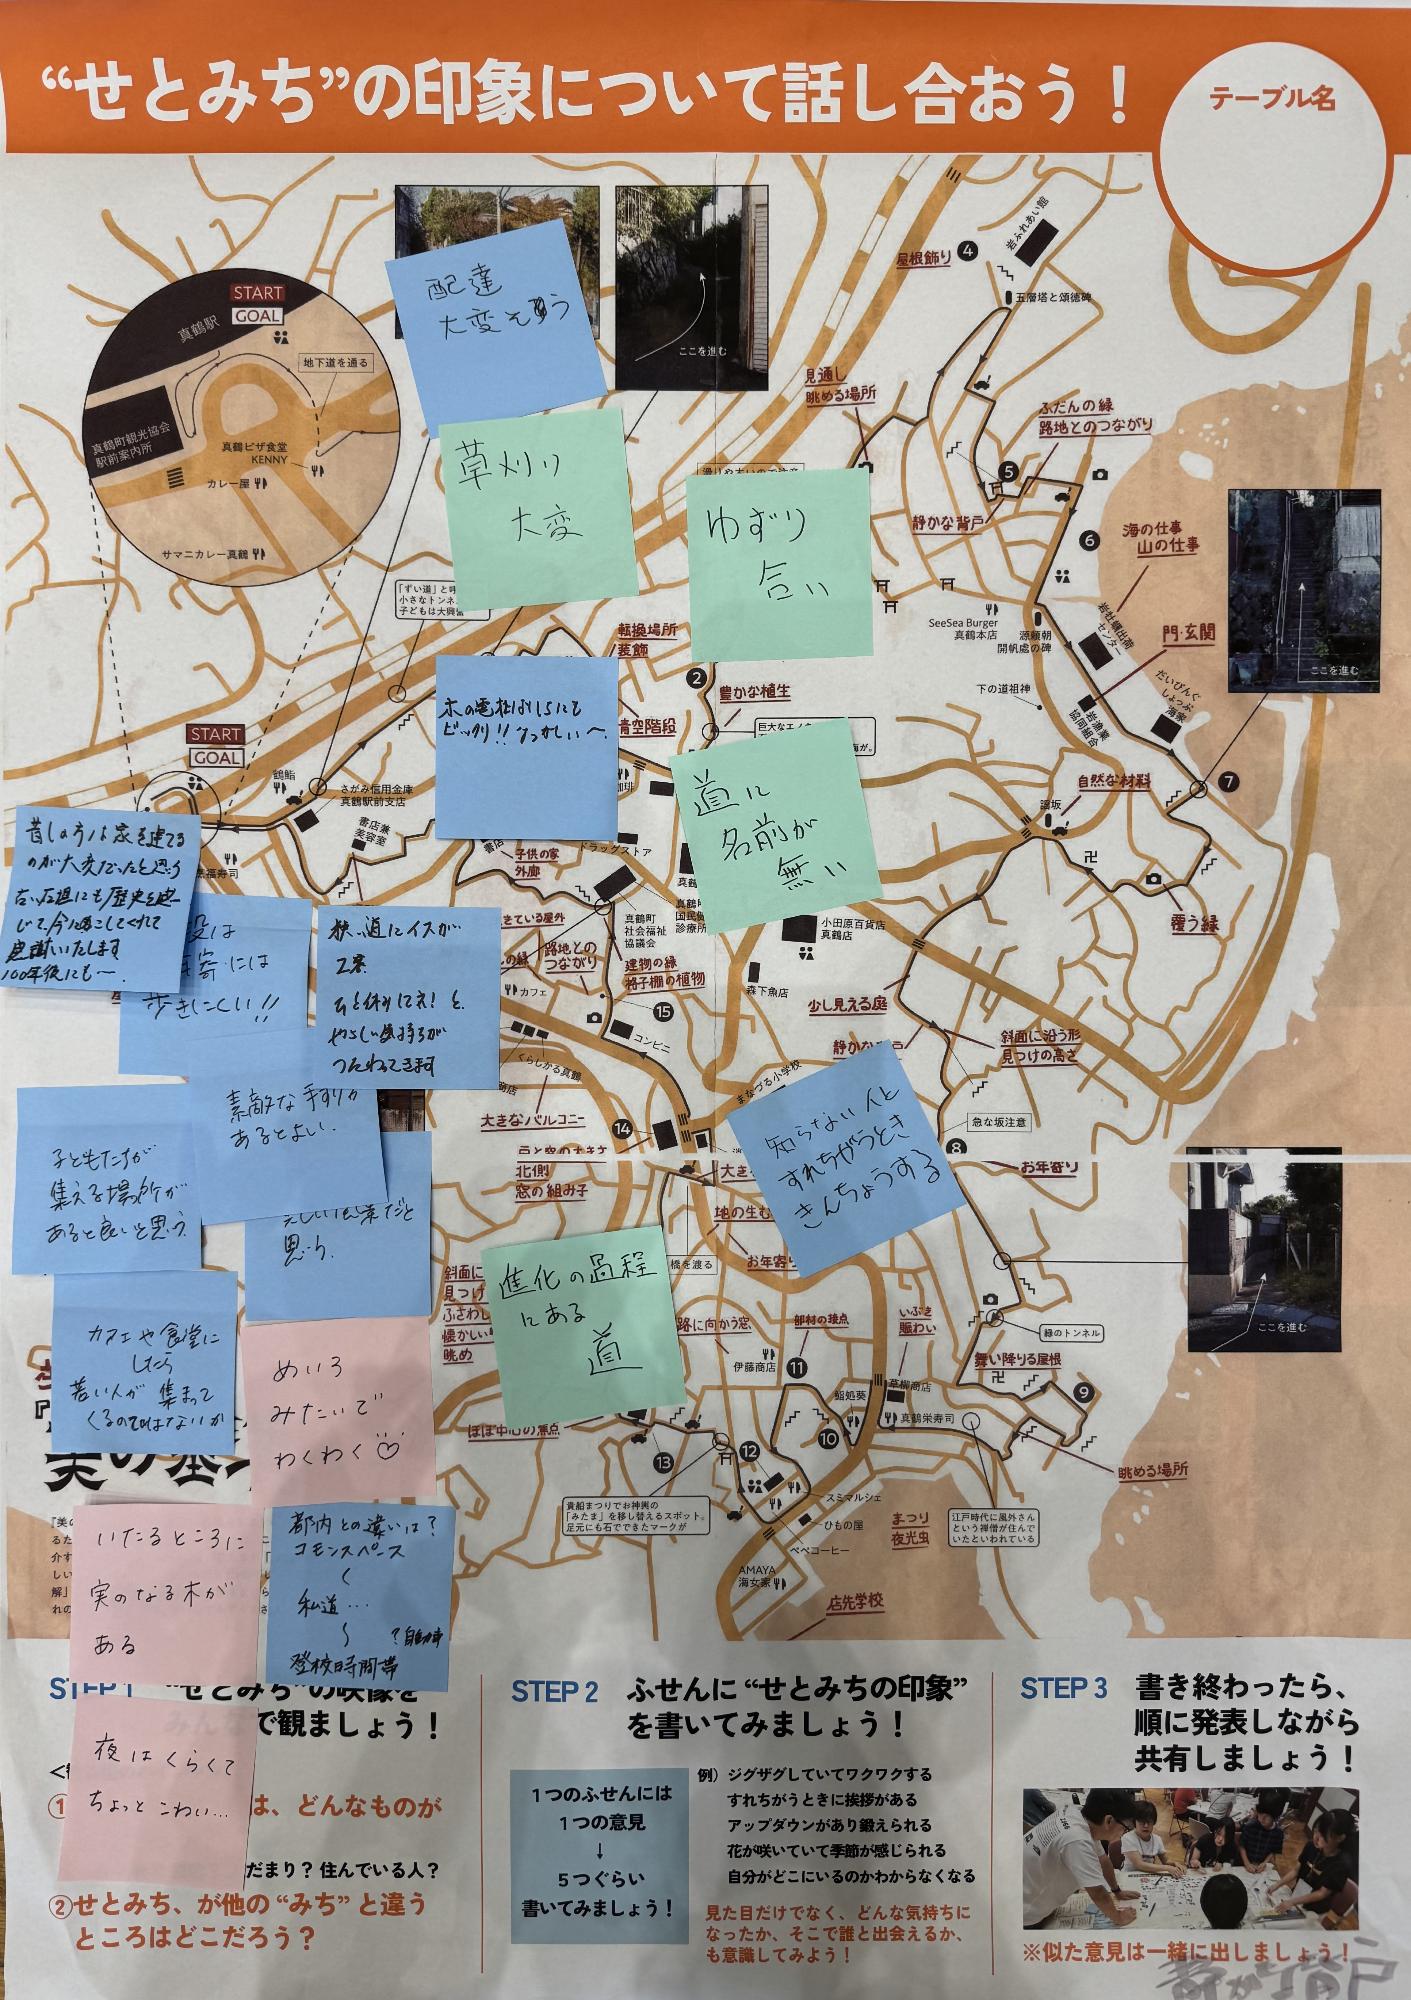 “せとみち”の印象について話し合おう！
テーブル名
START
GOAL
真鶴駅
地下道を通る
真鶴町観光協会
駅前案内所
真鶴ピザ食堂
KENNY
カレー屋
サマニカレー真鶴
配達
大変そう
ここを進む
草刈り
大変
ゆずり
合い
屋根飾り
4
岩ふれあい館
五層塔と頌徳碑
見通し
眺める場所
ふだんの緑
路地とのつながり
5
静かな背戸
海の仕事
山の仕事
6
SeeSea Burger
真鶴本店
源頼朝
開帆處の碑
岩牡蠣出荷
センター
門・玄関
ここを進む
下の道祖神
岩漁業
協同組合
だいびんぐ
しょっぷ
海家
7
自然な材料
謡坂
覆う緑
「ずい道」と呼
小さなトンネ
子どもは大興奮
転換場所
装飾
2
豊かな植生
青空階段
巨大なエノキ
木の電柱はしらにも
ビックリ!! なつかしい〜
道に
名前が
無い
START
GOAL
鶴鮨
さがみ信用金庫
真鶴駅前支店
書店兼
美容室
福寿司
ドラッグストア
子供の家
外廊
真鶴町
社会福祉
協議会
小田原百貨店
真鶴店
昔しの方は家を建てる
のが大変だったと思う
古い石垣にも歴史を感
じて、今に残こしてくれて
感謝いたします
100年後にも〜
歩きにくい!!
狭い道にイスが
2客
ちと休んでネ！と
やさしい気持ちが
つたわってきます
きている屋外
路地との
つながり
建物の緑
格子棚の植物
カフェ
15
コンビニ
くらしかる真鶴
森下魚店
少し見える庭
斜面に沿う形
見つけの高さ
まなづる小学校
大きなバルコニー
14
急な坂注意
8
北側
窓の組み子
お年寄り
素敵な手すりが
あるとよい。
子どもたちが
集える場所が
あると良いと思う
美しい風景だと
思う。
知らない人と
すれちがうとき
きんちょうする
地の生む
お年寄り
橋を渡る
ここを進む
緑のトンネル
斜面に
見つけ
ふさわし
懐かしい
眺め
進化の過程
にある
道
路に向かう窓
部材の接点
いぶき
賑わい
伊藤商店
11
草柳商店
舞い降りる屋根
9
鮨処葵
真鶴栄寿司
10
ほぼ中心の焦点
13
12
眺める場所
カフェや食堂に
したら
若い人が集まって
くるのではないか
めいろ
みたいで
わくわく♡
貴船まつりでお神輿の
「みたま」を移し替えるスポット。
足元にも石でできたマークが
スミマルシェ
ひもの屋
ぺぺコーヒー
まつり
夜光虫
江戸時代に風外さん
という禅僧が住んで
いたといわれている
AMAYA
海女家
店先学校
いたるところに
実のなる木が
ある
都内との違いは？
コモンスペース
私道…
？自動車
登校時間帯
夜はくらくて
ちょっとこわい…
STEP 1
“せとみち”の映像を
で観ましょう！
は、どんなものが
だまり？住んでいる人？
②せとみち、が他の“みち”と違う
ところはどこだろう？
STEP 2
ふせんに“せとみちの印象”
を書いてみましょう！
1つのふせんには
1つの意見
↓
5つぐらい
書いてみましょう！
例）ジグザグしていてワクワクする
すれちがうときに挨拶がある
アップダウンがあり鍛えられる
花が咲いていて季節が感じられる
自分がどこにいるのかわからなくなる
見た目だけでなく、どんな気持ちに
なったか、そこで誰と出会えるか、
も意識してみよう！
STEP 3
書き終わったら、
順に発表しながら
共有しましょう！
※似た意見は一緒に出しましょう！
静かな背戸